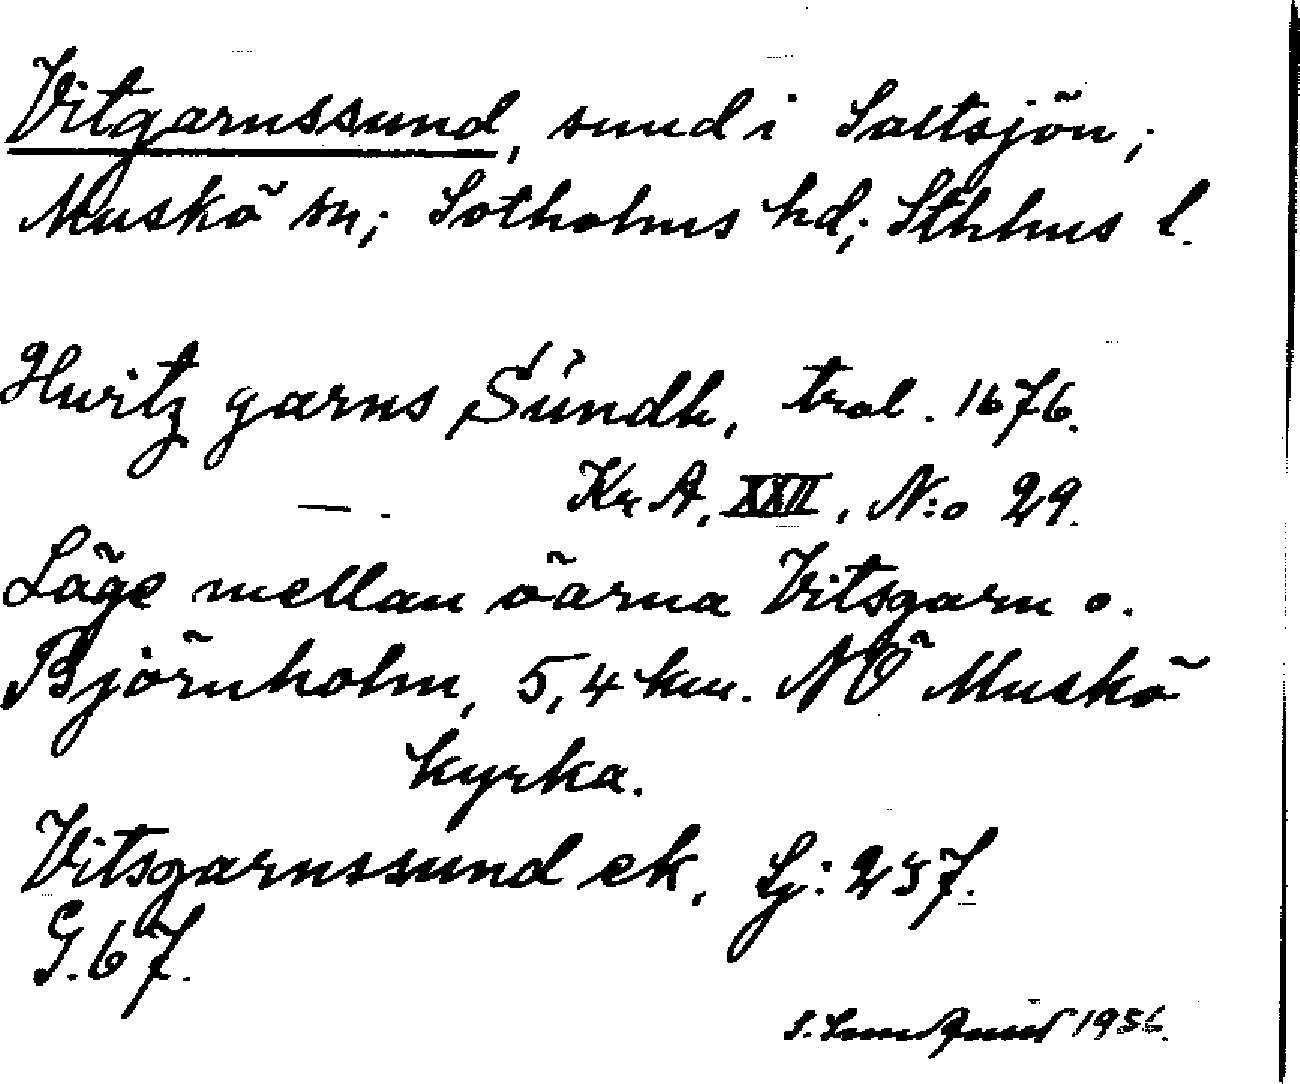 Vitgarnssund, sund i Saltsjön;
Muskö sn; Sotholms hd; Sthlms l.
Hwitz garns Sundh, trol. 1676.
— . Kr A, XXII, N:o 29.
Läge mellan öarna Vitsgarn o.
Björnholm, 5,4 km. NÖ Muskö
kyrka.
Vitsgarnssund ek, Lj: 257.
G. 67.
S. 1956.